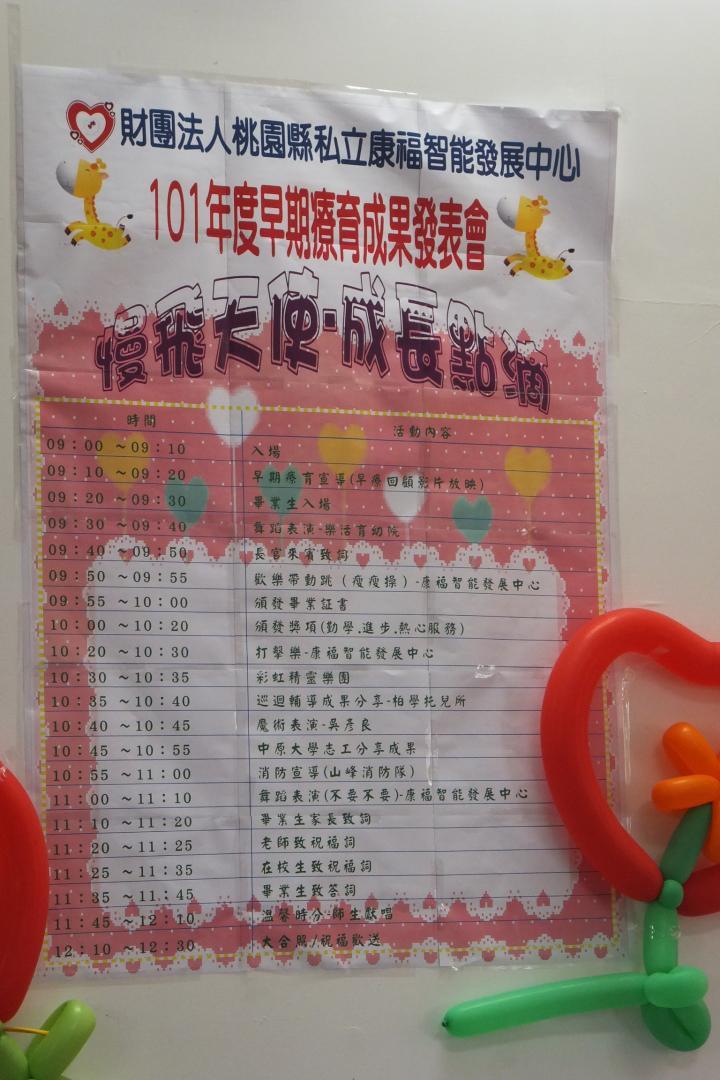 財團法人桃園縣私立康福智能發展中心
101年度早期療育成果發表會
慢飛天使·成長點滴
時間 活動內容
09：00 ～09：10 入場
09：10 ～09：20 早期療育宣導(早療回顧影片放映)
09：20 ～09：30 畢業生入場
09：30 ～09：40 舞蹈表演-樂活育幼院
09：40 ～09：50 長官來賓致詞
09：50 ～09：55 歡樂帶動跳（瘦瘦操）-康福智能發展中心
09：55 ～10：00 頒發畢業証書
10：00 ～10：20 頒發獎項(勤學.進步.熱心服務)
10：20 ～10：30 打擊樂-康福智能發展中心
10：30 ～10：35 彩虹精靈樂團
10：35 ～10：40 巡迴輔導成果分享-柏學托兒所
10：40 ～10：45 魔術表演-吳彥良
10：45 ～10：55 中原大學志工分享成果
10：55 ～11：00 消防宣導(山峰消防隊)
11：00 ～11：10 舞蹈表演(不要不要)-康福智能發展中心
11：10 ～11：20 畢業生家長致詞
11：20 ～11：25 老師致祝福詞
11：25 ～11：35 在校生致祝福詞
11：35 ～11：45 畢業生致答詞
11：45 ～12：10 溫馨時分-師生獻唱
12：10 ～12：30 大合照/祝福歡送